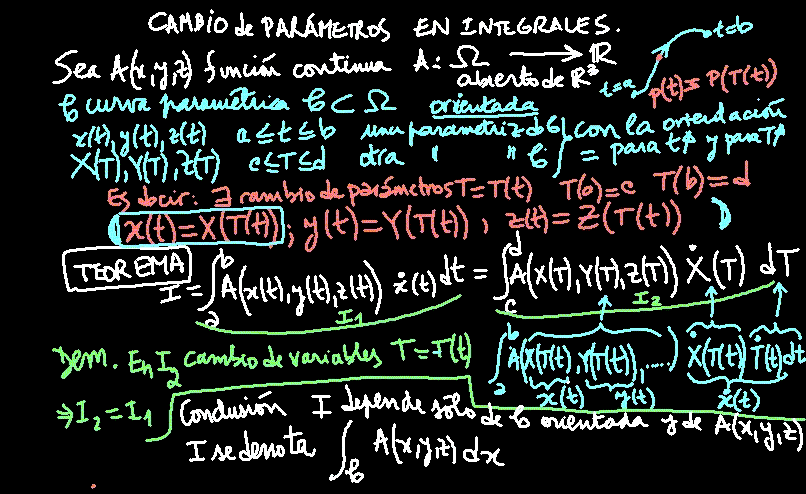 CAMBIO de PARÁMETROS EN INTEGRALES.
Sea A(x,y,z) función continua A: Ω → ℝ
abierto de ℝ³
t=a t=b
p(t)=P(T(t))
𝒞 curva paramétrica 𝒞⊂Ω orientada
x(t), y(t), z(t) a≤t≤b una parametriz de 𝒞
X(T), Y(T), Z(T) c≤T≤d otra " " 𝒞
con la orientación = para t↗ y para T↗
Es decir: ∃ cambio de parámetros T=T(t) T(a)=c T(b)=d
(x(t)=X(T(t)), y(t)=Y(T(t)), z(t)=Z(T(t)))
TEOREMA
I = ∫_a^b A(x(t), y(t), z(t)) ẋ(t) dt = ∫_c^d A(X(T), Y(T), Z(T)) Ẋ(T) dT
I₁ I₂
Dem. En I₂ cambio de variables T=T(t)
∫_a^b A(X(T(t)), Y(T(t)), .....) Ẋ(T(t)) Ṫ(t) dt
x(t) y(t) ẋ(t)
⇒ I₂ = I₁
Conclusión I depende sólo de 𝒞 orientada y de A(x,y,z)
I se denota ∫_𝒞 A(x,y,z) dx